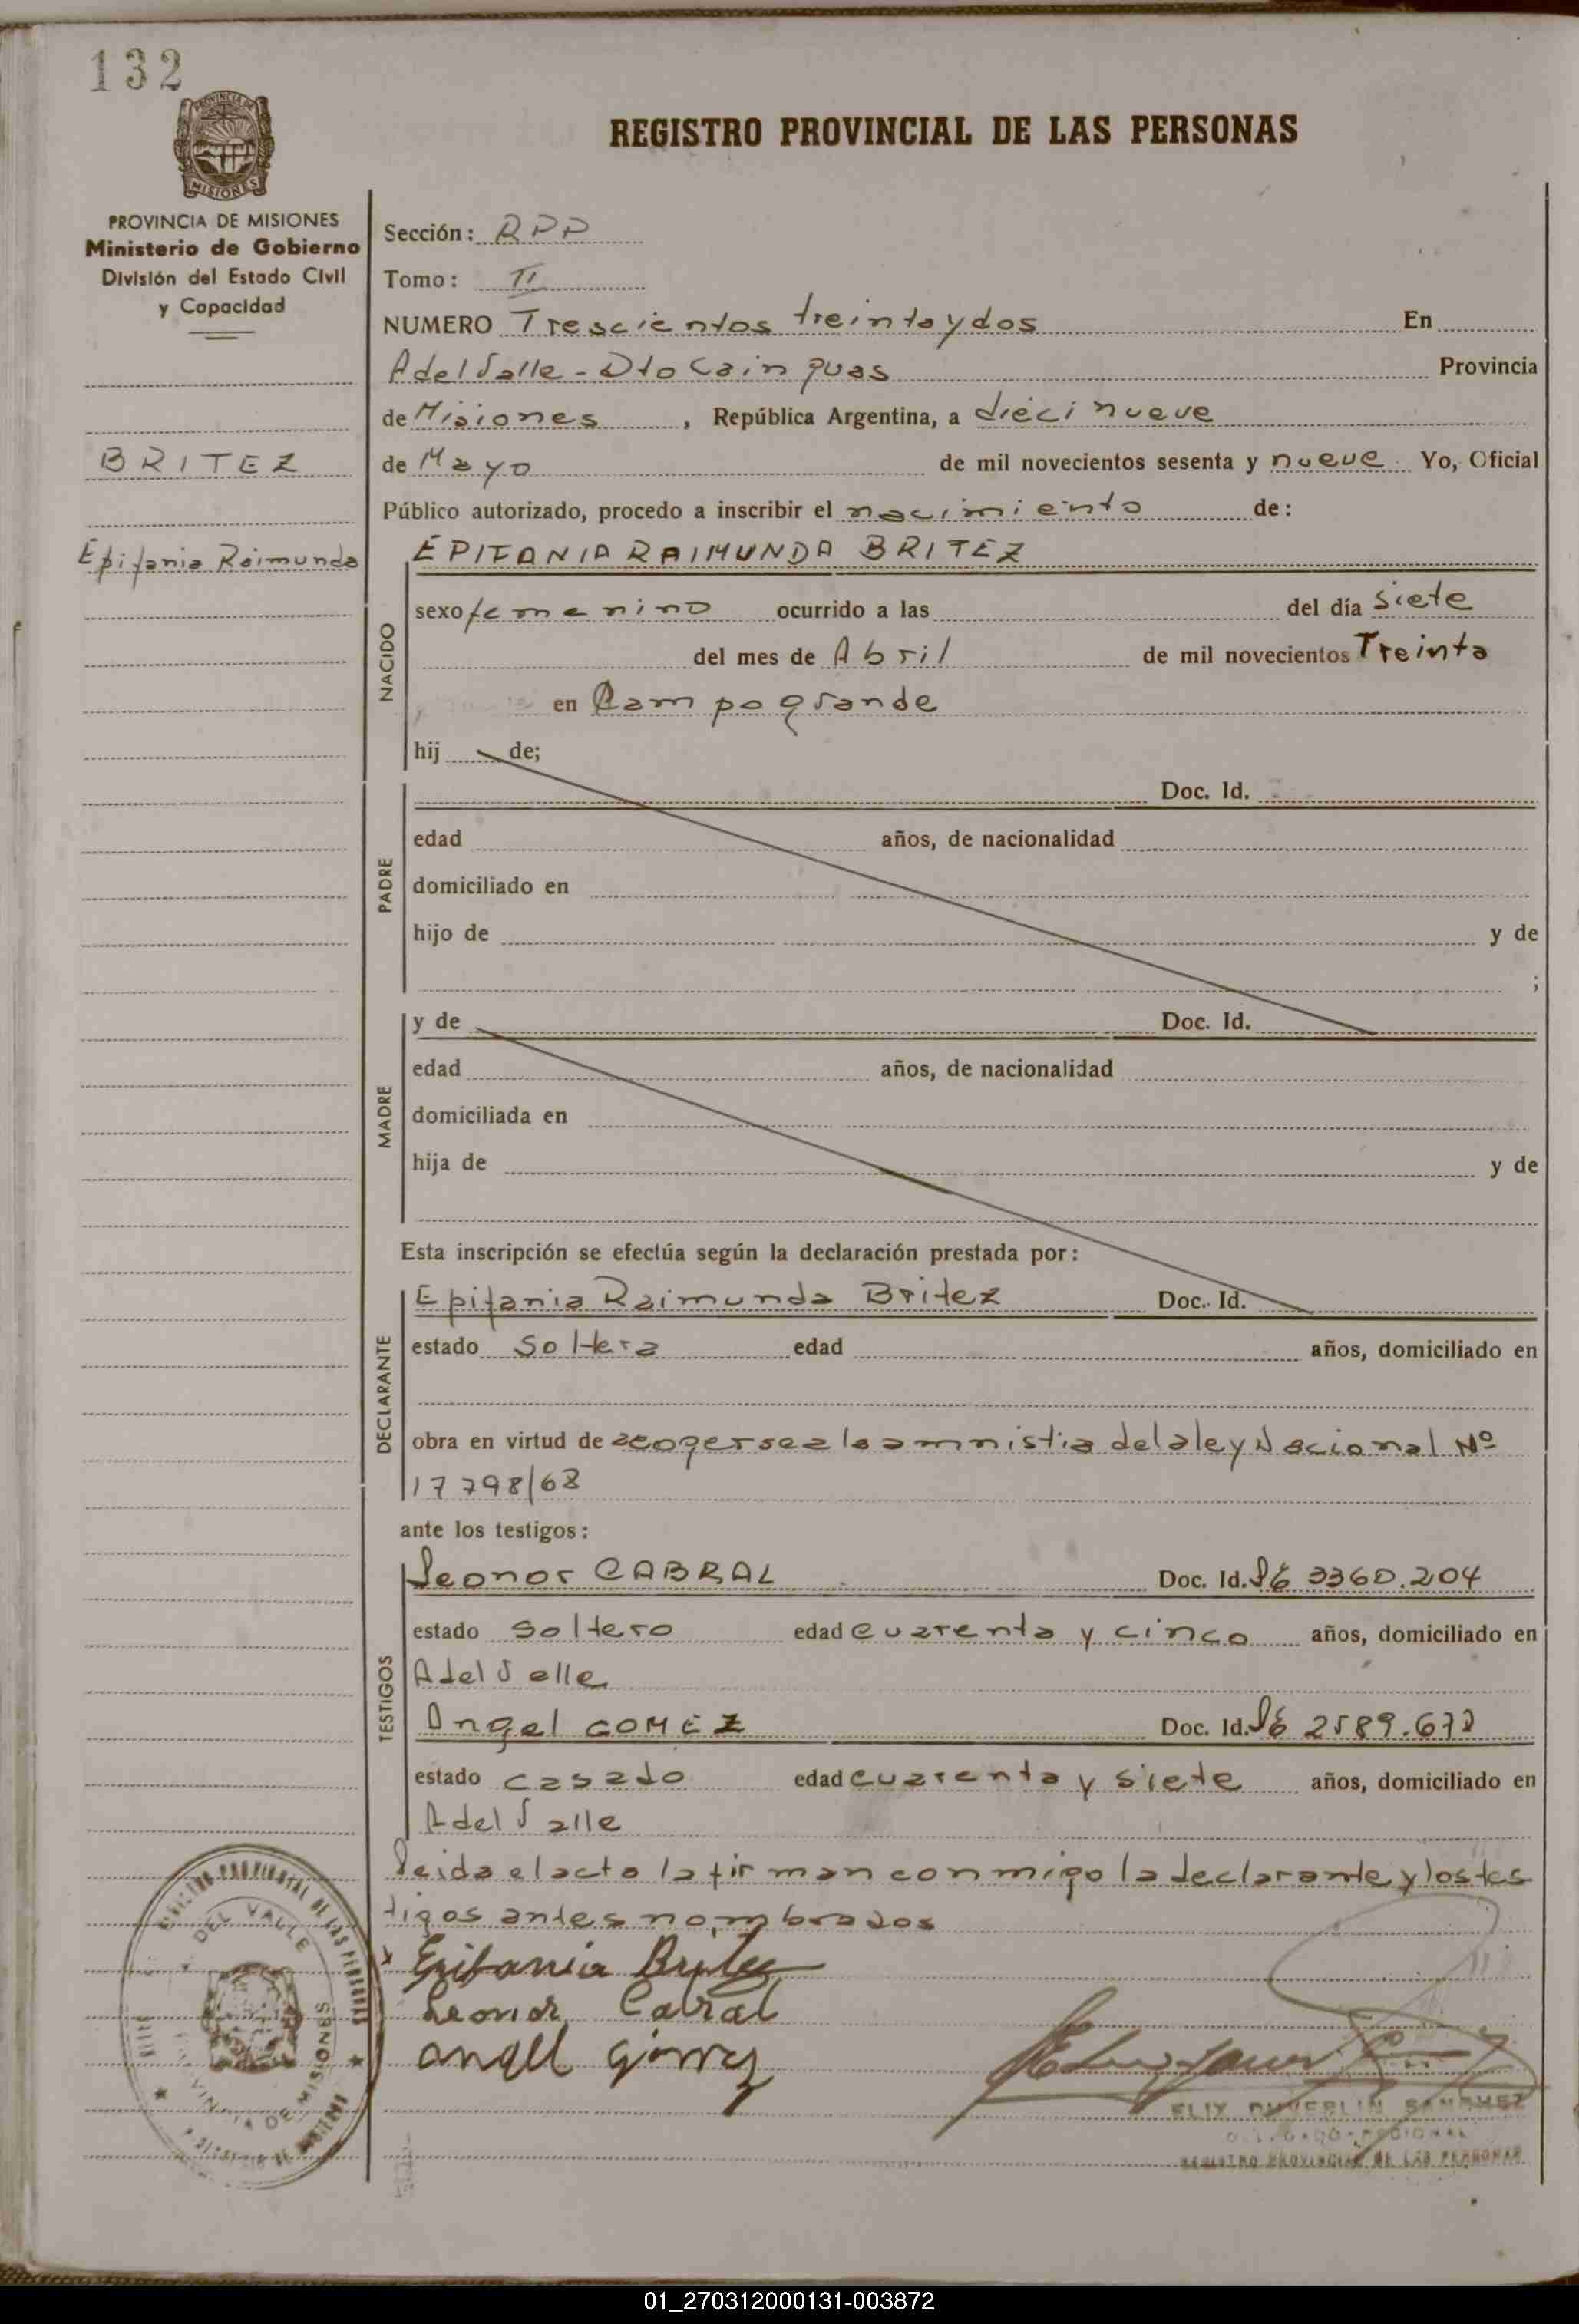 132
PROVINCIA DE
MISIONES
REGISTRO PROVINCIAL DE LAS PERSONAS
PROVINCIA DE MISIONES
Ministerio de Gobierno
División del Estado Civil
y Capacidad
BRITEZ
Epifania Raimunda
Sección: RPP
Tomo: II
NUMERO Trescientos treinta y dos En
A del Valle - Dto Cainguas Provincia
de Misiones, República Argentina, a diecinueve
de Mayo de mil novecientos sesenta y nueve Yo, Oficial
Público autorizado, procedo a inscribir el nacimiento de:
NACIDO
EPIFANIA RAIMUNDA BRITEZ
sexo femenino ocurrido a las del día siete
del mes de Abril de mil novecientos Treinta
en Campo grande
hij de;
PADRE
Doc. Id.
edad años, de nacionalidad
domiciliado en
hijo de y de
;
MADRE
y de Doc. Id.
edad años, de nacionalidad
domiciliada en
hija de y de
Esta inscripción se efectúa según la declaración prestada por:
DECLARANTE
Epifania Raimunda Britez Doc. Id.
estado soltera edad años, domiciliado en
obra en virtud de acogerse a la amnistia de la ley Nacional Nº
17798/68
ante los testigos:
TESTIGOS
Leonor CABRAL Doc. Id. LE 3360.204
estado soltero edad cuarenta y cinco años, domiciliado en
A del Valle
Angel GOMEZ Doc. Id. LE 2589.672
estado casado edad cuarenta y siete años, domiciliado en
A del Valle
Leida el acta la firman conmigo la declarante y los tes
tigos antes nombrados
Epifania Britez
Leonor Cabral
angel gomez
DEL VALLE
PROVINCIA DE MISIONES
SANCHEZ
DELEGADO REGIONAL
REGISTRO PROVINCIAL DE LAS PERSONAS
01_270312000131-003872